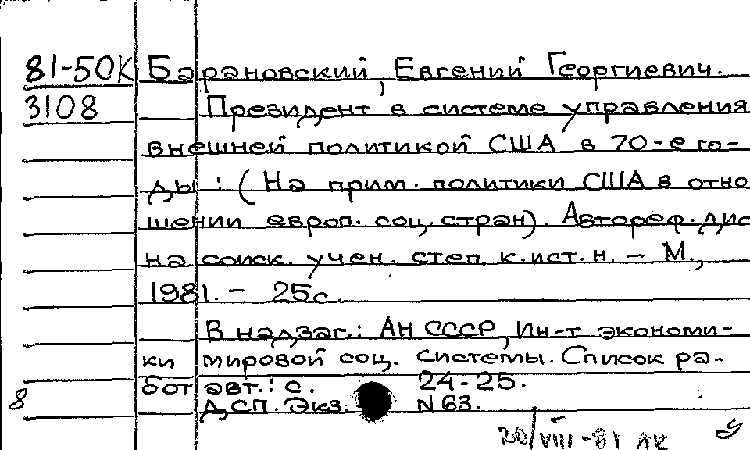 81-50К Барановский, Евгений Георгиевич.
3108 Президент в системе управления
внешней политикой США в 70-е го-
ды : (На прим. политики США в отно
шении европ. соц. стран). Автореф. дис
на соиск. учен. степ. к.ист.н. - М.,
1981. - 25с.
В надзаг.: АН СССР, Ин-т экономи-
ки мировой соц. системы. Список ра-
бот авт.: с. 24-25.
8 ДСП. Экз. N 63.
20/VIII-81